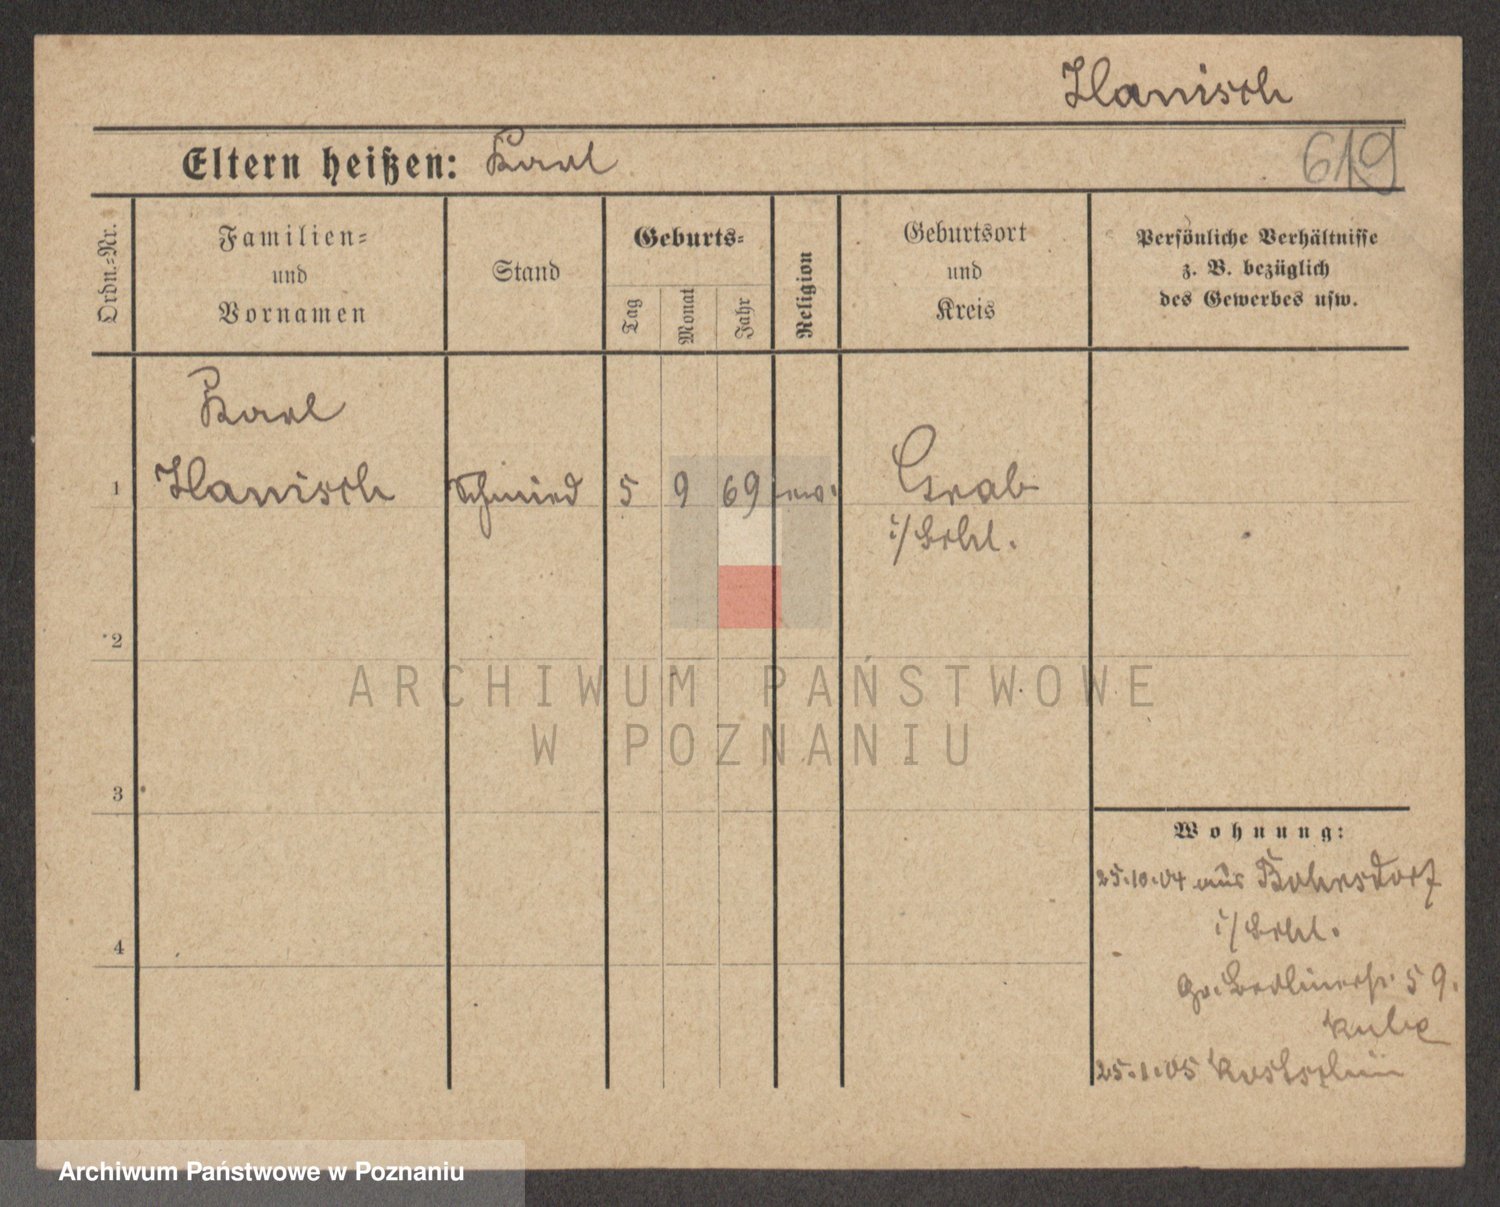 Hanisch
Eltern heißen: Karl
619
Ordn.-Nr.
Familien-
und
Vornamen
Stand
Geburts-
Tag
Monat
Jahr
Religion
Geburtsort
und
Kreis
Persönliche Verhältnisse
z. B. bezüglich
des Gewerbes usw.
Karl
1 Hanisch Schmied 5 9 69 ev. Grab
i/Schl.
2
ARCHIWUM PAŃSTWOWE
W POZNANIU
3
Wohnung:
25.10.04 aus
i/Schl.
4
Gr. Berlinerstr. 59.
25.1.05
Archiwum Państwowe w Poznaniu